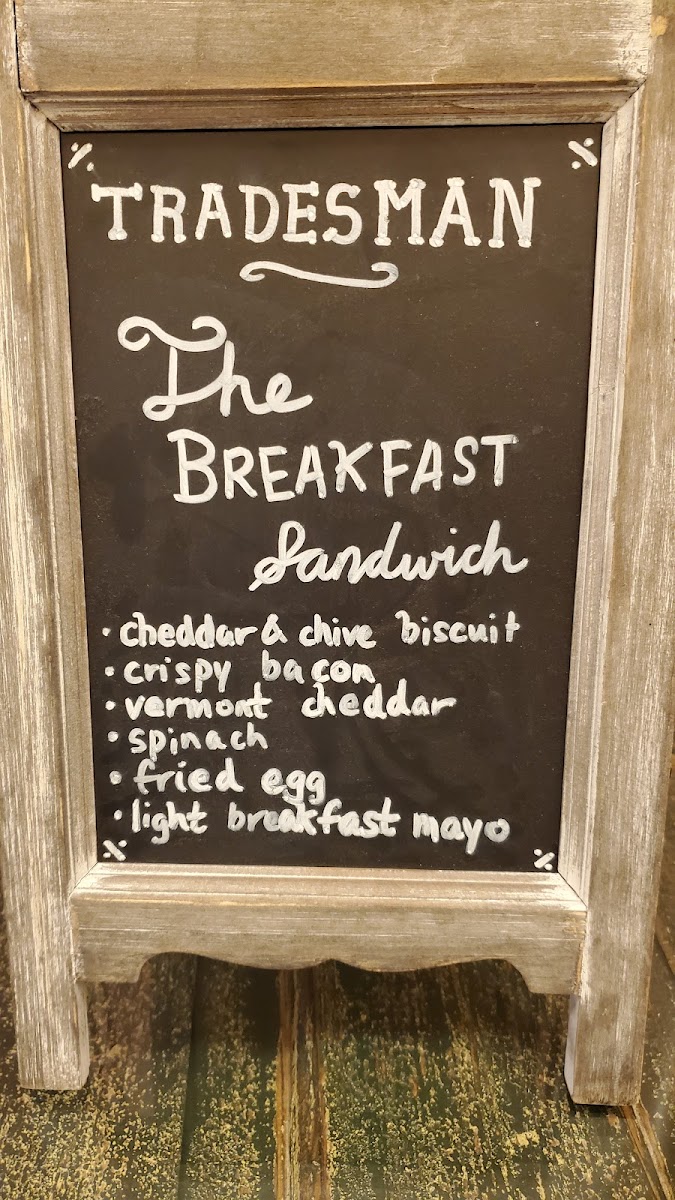 TRADESMAN
The
BREAKFAST
Sandwich
• cheddar & chive biscuit
• crispy bacon
• vermont cheddar
• spinach
• fried egg
• light breakfast mayo